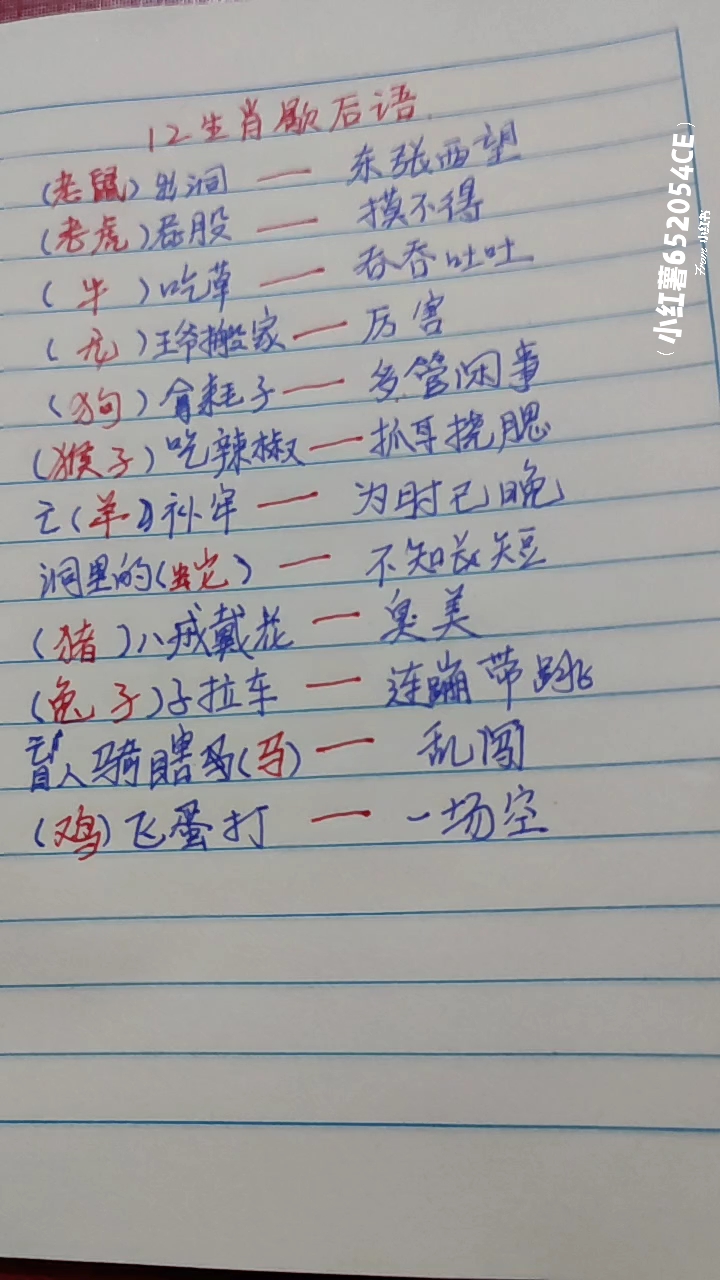 12生肖歇后语
(老鼠)出洞 — 东张西望
(老虎)屁股 — 摸不得
(牛)吃草 — 吞吞吐吐
(龙)王爷搬家 — 厉害
(狗)拿耗子 — 多管闲事
(猴子)吃辣椒 — 抓耳挠腮
亡(羊)补牢 — 为时已晚
洞里的(蛇) — 不知长短
(猪)八戒戴花 — 臭美
(兔子)子拉车 — 连蹦带跳
盲人骑瞎马(马) — 乱闯
(鸡)飞蛋打 — 一场空
(小红薯652054CE)
From 小红书